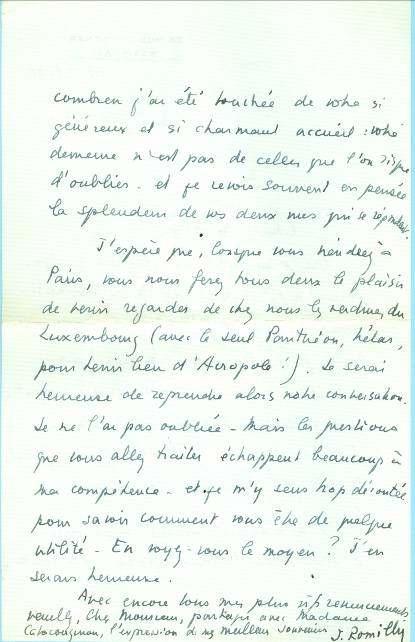 combien j'ai été touchée de votre si
généreux et si charmant accueil : votre
demeure n'est pas de celles que l'on risque
d'oublier. et je revois souvent en pensée
la splendeur de vos deux vues qui se répondent.
J'espère que, lorsque vous viendrez à
Paris, vous nous ferez tous deux le plaisir
de venir regarder de chez nous la verdure du
Luxembourg (avec le seul Panthéon, hélas,
pour tenir lieu d'Acropole !). Je serai
heureuse de reprendre alors notre conversation.
Je ne l'ai pas oubliée - Mais les questions
que vous allez traiter échappent beaucoup à
ma compétence - et je m'y sens trop déroutée
pour savoir comment vous être de quelque
utilité - En voyez-vous le moyen ? J'en
serais heureuse.
Avec encore tous mes plus vifs remerciements
veuillez, Cher Monsieur, partager avec Madame
l'expression de mes meilleurs souvenirs J. Romilly